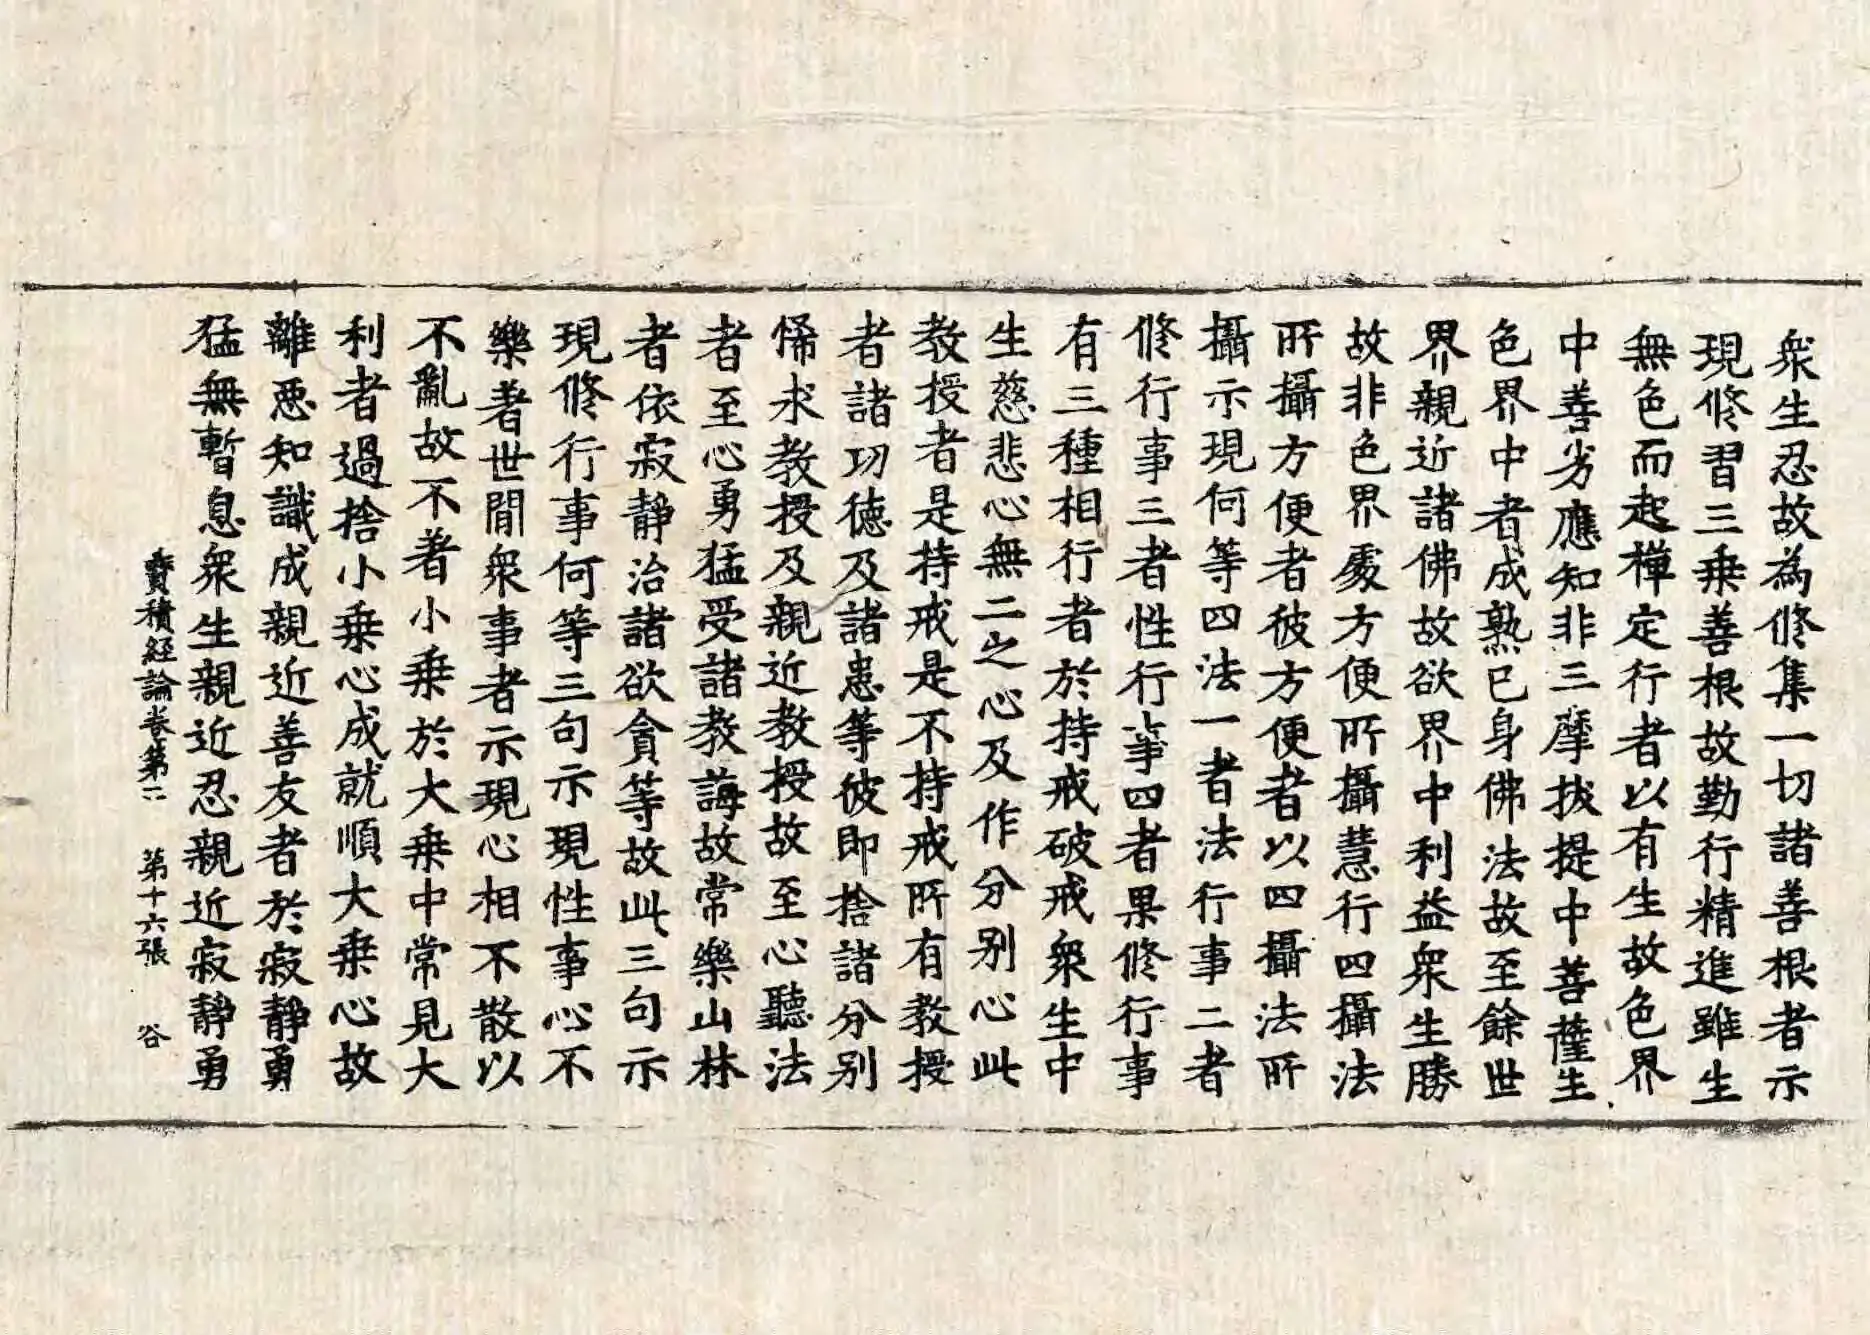 衆生忍故為修集一切諸善根者示
現修習三乗善根故勤行精進雖生
無色而起禅定行者以有生故色界
中善劣應知非三摩拔提中善菩薩生
色界中者成熟已身佛法故至餘世
界親近諸佛故欲界中利益衆生勝
故非色界處方便所攝慧行四攝法
所攝方便者彼方便者以四攝法所
攝示現何等四法一者法行事二者
修行事三者性行事四者果修行事
有三種相行者於持戒破戒衆生中
生慈悲心無二之心及作分別心此
教授者是持戒是不持戒所有教授
者諸功徳及諸恚等彼即捨諸分別
悕求教授及親近教授故至心聽法
者至心勇猛受諸教誨故常樂山林
者依寂静治諸欲貪等故此三句示
現修行事何等三句示現性事心不
樂著世間衆事者示現心相不散以
不亂故不著小乗於大乗中常見大
利者過捨小乗心成就順大乗心故
離惡知識成親近善友者於寂静勇
猛無暫息衆生親近忍親近寂静勇
寶積經論卷第二 第十六張 谷